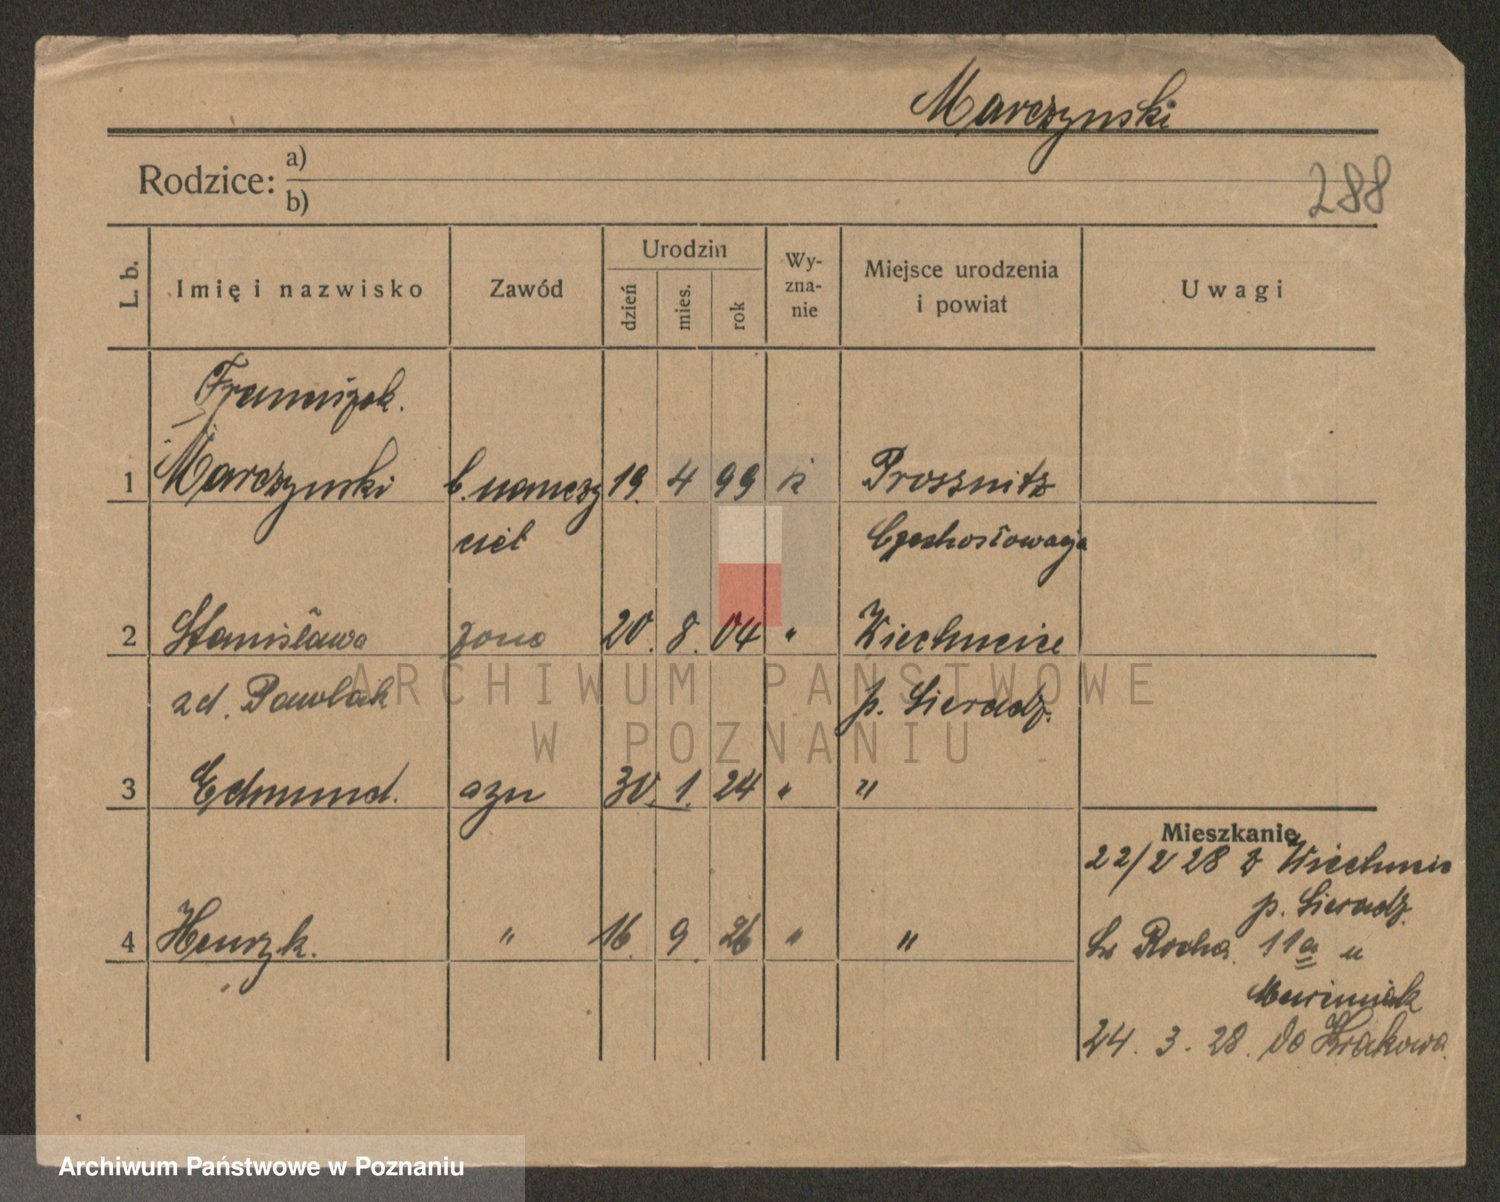 Marczynski
Rodzice: a)
b)
288
L. b.
Imię i nazwisko
Zawód
Urodzin
dzień
mies.
rok
Wy-
zna-
nie
Miejsce urodzenia
i powiat
Uwagi
Franciszek.
1 Marczynski b. nauczy 19. 4 99 k Prossnitz
ciel Czechosłowacja
2 Stanisława żona 20. 8. 04 " Wiechucice
zd. Pawlak p. Sieradz.
3 Edmund. syn 30. 1. 24 " "
Mieszkanie
22/2 28 z
p. Sieradz.
4 Henryk. " 16. 9. 26 " "
Św Rocha. 11a u
24. 3. 28. do Krakowa.
ARCHIWUM PAŃSTWOWE
W POZNANIU
Archiwum Państwowe w Poznaniu